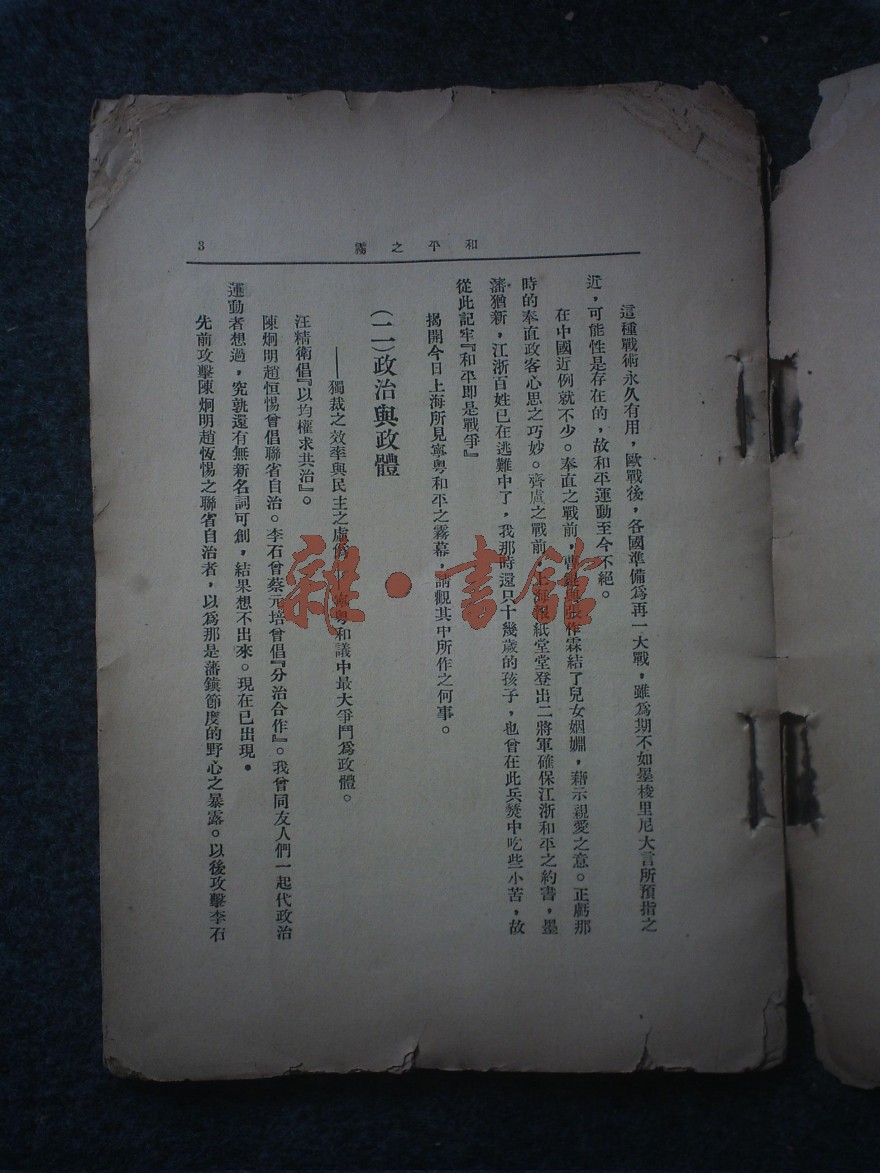 和平之霧
3
這種戰術永久有用，歐戰後，各國準備爲再一大戰，雖爲期不如墨梭里尼大言所預指之
近，可能性是存在的，故和平運動至今不絕。
在中國近例就不少。奉直之戰前，曹與張作霖結了兒女姻姻，藉示親愛之意。正虧那
時的奉直政客心思之巧妙。齊盧之戰前，上海報紙堂堂登出二將軍確保江浙和平之約書，墨
瀋猶新，江浙百姓已在逃難中了，我那時還只十幾歲的孩子，也曾在此兵燹中吃些小苦，故
從此記牢『和平即是戰爭』
揭開今日上海所見寧粤和平之霧幕，請觀其中所作之何事。
（二）政治與政體
——獨裁之效率與民主之虛僞寧粤和議中最大爭鬥爲政體。
汪精衛倡『以均權求共治』。
陳炯明趙恒惕曾倡聯省自治。李石曾蔡元培曾倡『分治合作』。我曾同友人們一起代政治
運動者想過，究竟還有無新名詞可創，結果想不出來。現在已出現。
先前攻擊陳炯明趙恆惕之聯省自治者，以爲那是藩鎮節度的野心之暴露。以後攻擊李石
雜·書館